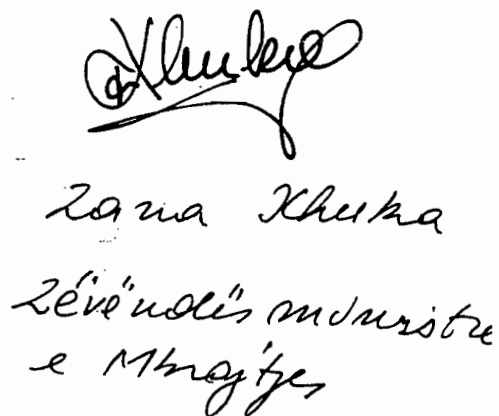 Zana Xhuka
Zëvëndës ministre
e Mbrojtjes